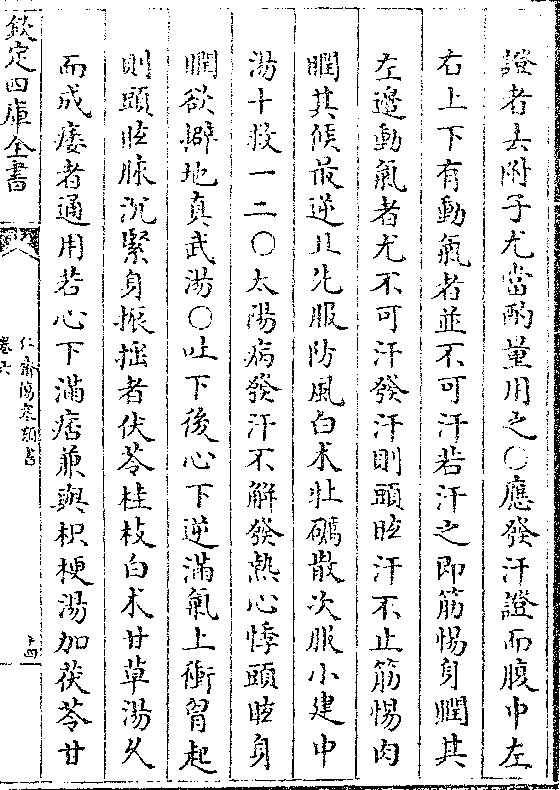 證者去附子尤當酌量用之○應發汗證而腹中左
右上下有動氣者並不可汗若汗之即筋惕身瞤其
左邊動氣者尤不可汗發汗則頭眩汗不止筋惕肉
瞤其候最逆且先服防風白术牡礪散次服小建中
湯十救一二○太陽病發汗不解發熱心悸頭眩身
瞤欲擗地真武湯○吐下後心下逆滿氣上衝胷起
則頭眩脉沉緊身振揺者伏苓桂枝白术甘草湯久
而成痿者通用若心下滿痞兼與枳梗湯加茯苓甘
欽定四庫全書
仁齋傷寒類書
卷六
十四